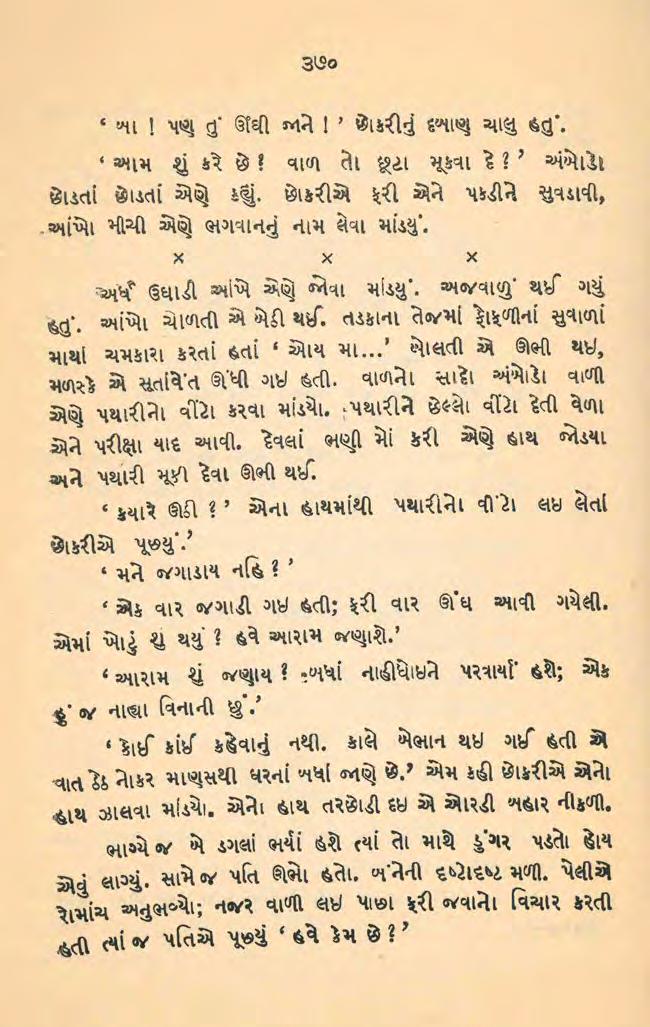 ૩૭૦
‘ બા ! પણ તું ઊંઘી જાને ! ’ છોકરીનું દબાણ ચાલુ હતું.
‘ આમ શું કરે છે ? વાળ તો છૂટા મૂકવા દે ? ’ અંબોડો
છોડતાં છોડતાં એણે કહ્યું. છોકરીએ ફરી એને પકડીને સુવડાવી,
આંખો મીચી એણે ભગવાનનું નામ લેવા માંડયું.
× × ×
અર્ધ ઉઘાડી આંખે એણે જોવા માંડયું. અજવાળું થઈ ગયું
હતું. આંખો ચોળતી એ બેઠી થઈ. તડકાના તેજમાં ફોફળીનાં સુવાળાં
માથાં ચમકારા કરતાં હતાં ‘ ઓય મા...’ બોલતી એ ઊભી થઇ,
મળસ્કે એ સૂતાંવેંત ઊંઘી ગઇ હતી. વાળનો સાદો અંબોડો વાળી
એણે પથારીનો વીંટો કરવા માંડયો. પથારીને છેલ્લો વીંટો દેતી વેળા
એને પરીક્ષા યાદ આવી. દેવલાં ભણી મોં કરી એણે હાથ જોડયા
અને પથારી મૂકી દેવા ઊભી થઈ.
‘ કયારે ઊઠી ? ’ એના હાથમાંથી પથારીનો વીંટો લઇ લેતાં
છોકરીએ પૂછયું.’
‘ મને જગાડાય નહિ ? ’
‘ એક વાર જગાડી ગઇ હતી; ફરી વાર ઊંઘ આવી ગયેલી.
એમાં ખોટું શું થયું ? હવે આરામ જણાશે.’
‘ આરામ શું જણાય ? બધાં નાહીધોઇને પરવાર્યાં હશે; એક
હું જ નાહ્યા વિનાની છું.’
‘ કોઈ કાંઈ કહેવાનું નથી. કાલે બેભાન થઇ ગઈ હતી એ
વાત ઠેઠ નોકર માણસથી ઘરનાં બધાં જાણે છે.’ એમ કહી છોકરીએ એનો
હાથ ઝાલવા માંડયો. એનો હાથ તરછોડી દઇ એ ઓરડી બહાર નીકળી.
ભાગ્યે જ બે ડગલાં ભર્યાં હશે ત્યાં તો માથે ડુંગર પડતો હોય
એવું લાગ્યું. સામે જ પતિ ઊભો હતો. બંનેની દષ્ટોદષ્ટ મળી. પેલીએ
રોમાંચ અનુભવ્યો; નજર વાળી લઇ પાછા ફરી જવાનો વિચાર કરતી
હતી ત્યાં જ પતિએ પૂછયું ‘ હવે કેમ છે ? ’